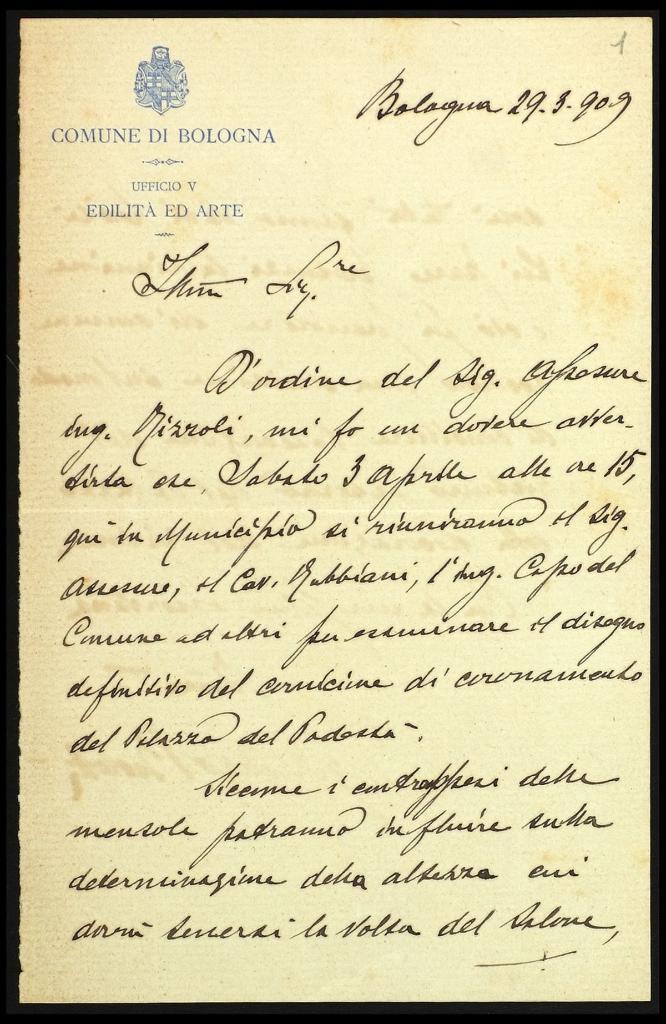 1
Bologna 29.3.909
COMUNE DI BOLOGNA
UFFICIO V
EDILITÀ ED ARTE
Illmo Sig.re
D'ordine del Sig. Assessore
ing. Rizzoli, mi fo un dovere avver-
tirla che, Sabato 3 Aprile alle ore 15,
qui in Municipio si riuniranno il Sig.
Assessore, il Cav. Rubbiani, l'ing. Capo del
Comune ed altri per esaminare il disegno
definitivo del cornicione di coronamento
del Palazzo del Podestà.
Siccome i contrappesi delle
mensole potranno influire sulla
determinazione della altezza cui
dovrà tenersi la volta del Salone,